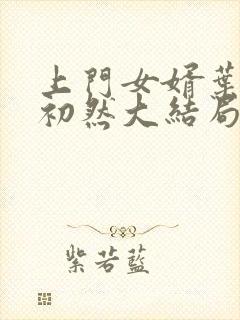 上門女婿葉
初然大結局
紫若藍